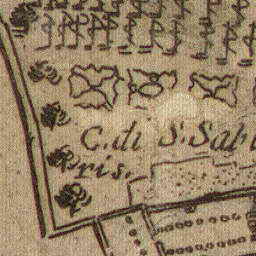 C. di S. Sabi
ris.